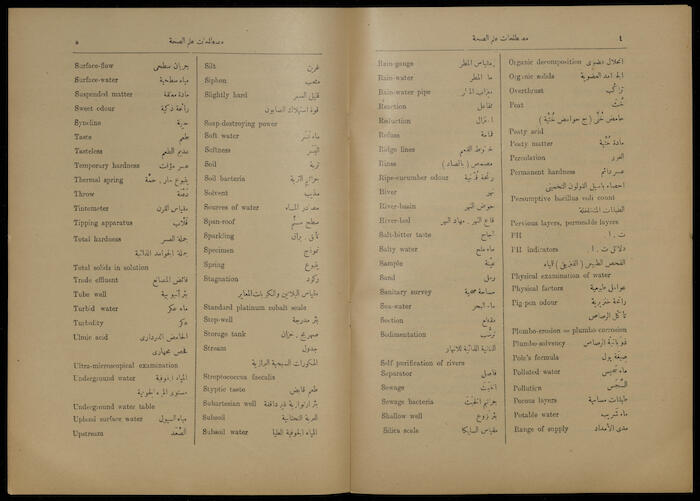 ٤
مصطلحات علم الصحة
Organic decomposition انحلال عضوي
Organic solids الجوامد العضوية
Overthrust تراكب
Peat خُثّ
Peaty acid
Peaty matter مادة خُثّية
Percolation
Permanent hardness عسر دائم
احصاء باسيل القولون التخميني
Persumptive bacillus coli count
الطبقات
Pervious layers, permeable layers
PH
PH indicators
الفحص الطبيعي (الفيزيقي) للمياه
Physical examination of water
Physical factors عوامل طبيعية
Pig-pen odour رائحة خنزيرية
تأكل الرصاص
Plumbo-erosion = plumbo corrosion
Plumbo-solvency ذوبانية الرصاص
Pole's formula صيغة پول
Polluted water
Pollution
Porous layers طبقات مسامية
Potable water ماء شريب
Range of supply مدى الأمداد
Rain-gauge مقياس المطر
Rain-water ماء المطر
Rain-water pipe
Reaction تفاعل
Reduction اختزال
Refuse قمامة
Ridge lines خطوط القمم
Rinse
Ripe-cucumber odour
River نهر
River-basin حوض النهر
River-bed قاع النهر . مهاد النهر
Salt-bitter taste أجاج
Salty water ماء ملح
Sample عينة
Sand رمل
Sanitary survey مساحة صحية
Sea-water ماء البحر
Section مقطع
Sedimentation ترسّب
التنقية الذاتية للانهار
Self purification of rivers
Separator فاصل
Sewage الخَبَث
Sewage bacteria جراثيم الخَبَث
Shallow well بئر نزوع
Silica scale مقياس السليكا
٥
مصطلحات علم الصحة
Silt غرين
Siphon مثعب
Slightly hard قليل العسر
قوة استهلاك الصابون
Soap-destroying power
Soft water
Softness
Soil تربة
Soil bacteria جراثيم التربة
Solvent مذيب
Sources of water مصادر الماء
Span-roof سطح مسنّم
Sparkling
Specimen نموذج
Spring ينبوع
Stagnation ركود
مقياس البلاتين والكوبلت المعاير
Standard platinum cobalt scale
Step-well بئر مدرجة
Storage tank صهريج . خزان
Stream جدول
المكورات السبحية البرازية
Streptococcus faecalis
Styptic taste طعم قابض
Subartesian well
Subsoil التربة التحتانية
Subsoil water
Surface-flow جريان سطحي
Surface-water مياه سطحية
Suspended matter مادة معلقة
Sweet odour رائحة ذكية
Syncline
Taste طعم
Tasteless عديم الطعم
Temporary hardness عسر مؤقت
Thermal spring ينبوع حار . حمّة
Throw
Tintometer مقياس اللون
Tipping apparatus قلّاب
Total hardness جملة العسر
جملة الجوامد الذائبة
Total solids in solution
Trade effluent فائض المصانع
Tube well بئر أنبوبية
Turbid water ماء عكر
Turbidity عكر
Ulmic acid
فحص مجهاري
Ultra-microscopical examination
Underground water المياه الجوفية
مستوى المياه الجوفية
Underground water table
Upland surface water مياه السيول
Upstream الصُّعُد